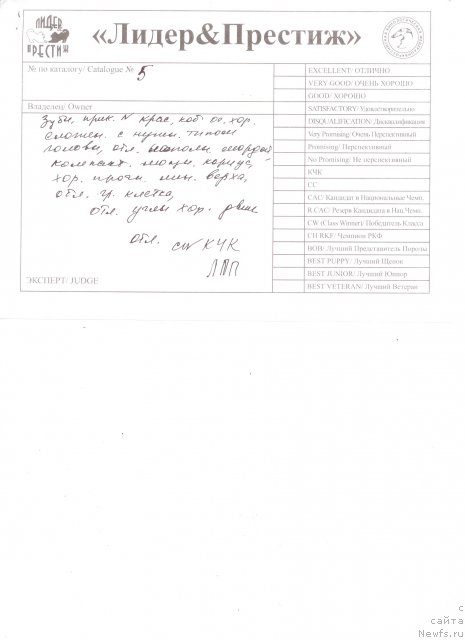 ЛИДЕР
ПРЕСТИЖ
«Лидер&Престиж»
№ по каталогу/ Catalogue № 5
Владелец/ Owner
Зубы, прик. N крас, коб оч. хор.
сложен. с нужн. типом
головы, отл. наполн. мордой
компакт. мощн. корпус,
хор. прочн. лин. верха,
отл. гр. клетка,
отл. углы хор. движ
отл. CW КЧК
ЛПП
ЭКСПЕРТ/ JUDGE
EXCELLENT/ ОТЛИЧНО
VERY GOOD/ ОЧЕНЬ ХОРОШО
GOOD/ ХОРОШО
SATISFACTORY/ Удовлетворительно
DISQUALIFICATION/ Дисквалификация
Very Promising/ Очень Перспективный
Promising/ Перспективный
No Promising/ Не перспективный
КЧК
СС
CAC/ Кандидат в Национальные Чемп.
R.CAC/ Резерв Кандидата в Нац.Чемп.
CW (Class Winner)/ Победитель Класса
CH RKF/ Чемпион РКФ
BOB/ Лучший Представитель Породы
BEST PUPPY/ Лучший Щенок
BEST JUNIOR/ Лучший Юниор
BEST VETERAN/ Лучший Ветеран
с
сайта
Newfs.ru